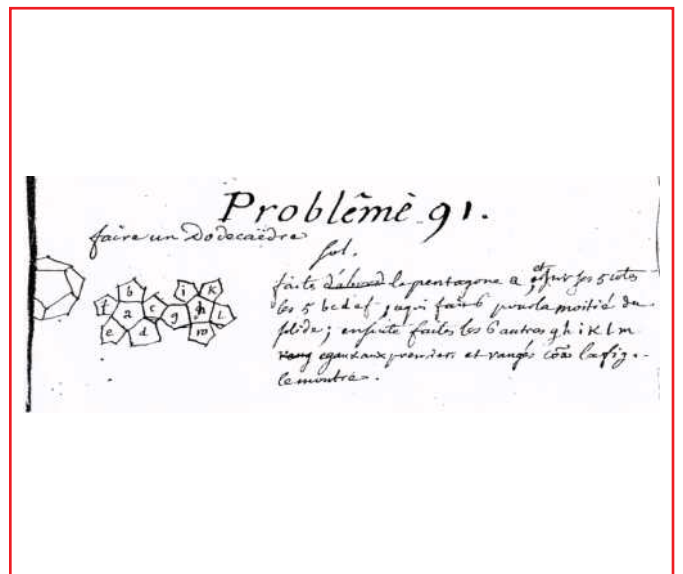 Problême 91.
faire un Dodecaëdre
sol.
faits d'abord le pentagone a, et sur ses 5 cotés
les 5 bcdef, ce qui fait 6 pour la moitié du
solide; ensuite faites les 6 autres g h i K l m
rang egaux aux premiers et rangés coñe la fig.
le montre.
b
i
K
f
a
c
g
h
L
e
d
m